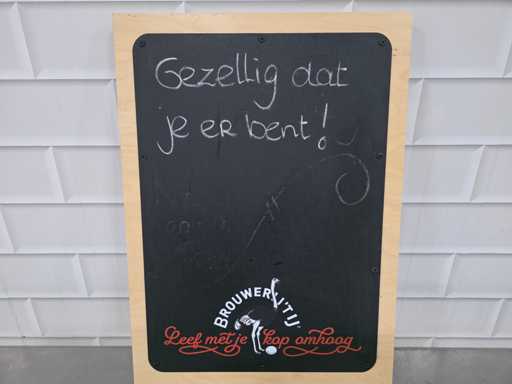 Gezellig dat
je er bent!
BROUWERIJ 'T IJ
Leef met je kop omhoog